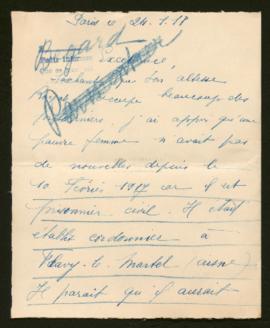 Paris le 24.1.18
Bogard
Excellence
sachant que son altesse
s'occupe beaucoup des
prisonniers j'ai appris qu'une
pauvre femme n'avait pas
de nouvelles depuis le
10 Février 1917 car il est
prisonnier civil. Il était
établi cordonnier à
Flavy-le-Martel (aisne)
Il parait qu'il aurait